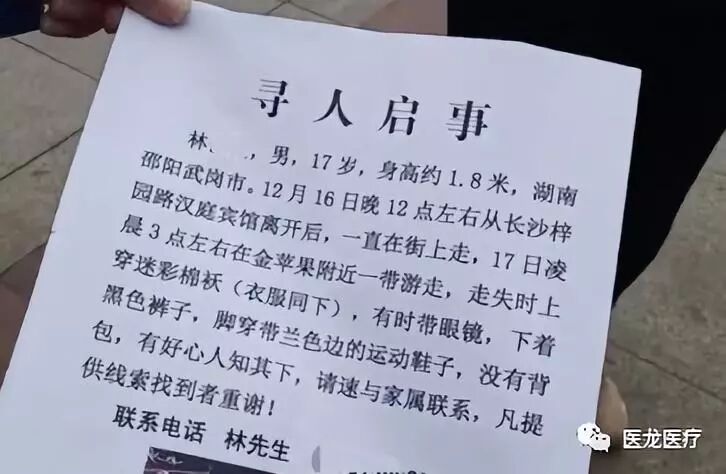 寻人启事
林 ，男，17岁，身高约1.8米，湖南
邵阳武岗市。12月16日晚12点左右从长沙梓
园路汉庭宾馆离开后，一直在街上走，17日凌
晨3点左右在金苹果附近一带游走，走失时上
穿迷彩棉袄（衣服同下），有时带眼镜，下着
黑色裤子，脚穿带兰色边的运动鞋子，没有背
包，有好心人知其下，请速与家属联系，凡提
供线索找到者重谢！
联系电话 林先生
医龙医疗